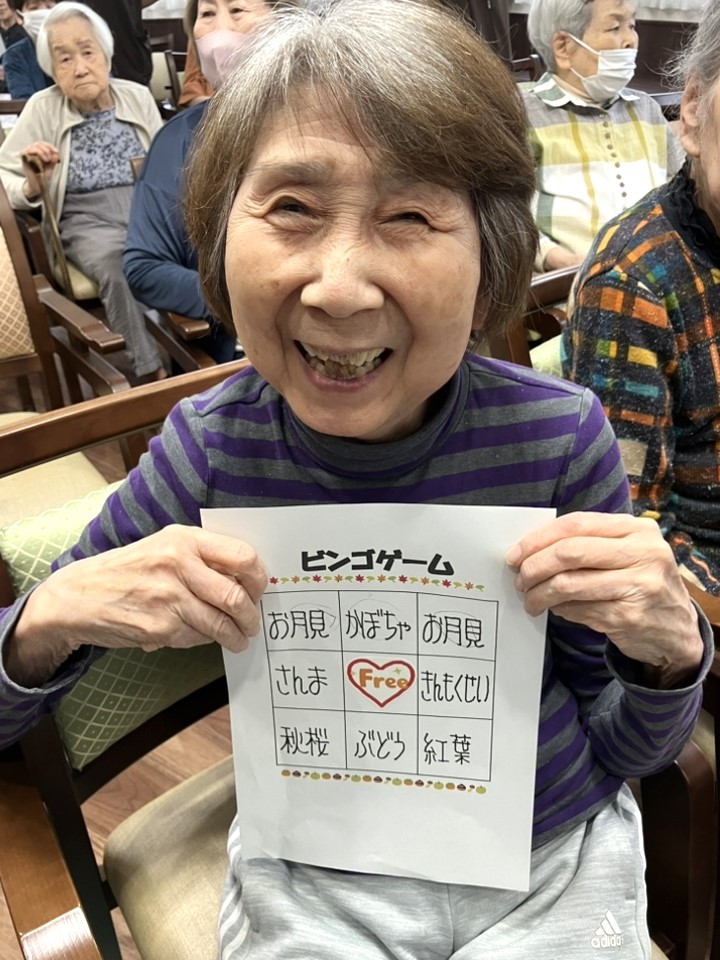 ビンゴゲーム
お月見 かぼちゃ お月見
さんま Free きんもくせい
秋桜 ぶどう 紅葉
adidas